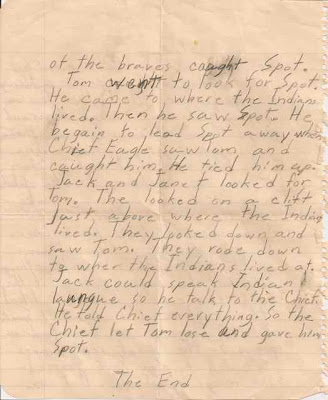 of the braves caught Spot.
Tom went to look for Spot.
He came to where the Indians
lived. Then he saw Spot. He
begain to lead Spot away when
Chief Eagle saw Tom and
caught him. He tied him up.
Jack and Janet looked for
Tom. The looked on a clift
just above where the Indian
lived. They looked down and
saw Tom. They rode down
to wher the Indians lived at.
Jack could speak Indian
laungue so he talk to the Chief.
He told Chief everything. So the
Chief let Tom lose and gave him
Spot.
The End